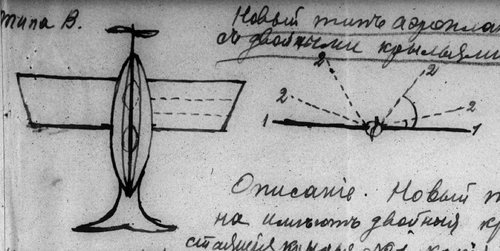 типа В.
Новый типъ аэропла
съ двойными крыльями
2 2
2 2
1 1
Описаніе. Новый т
на имѣетъ двойныя кр